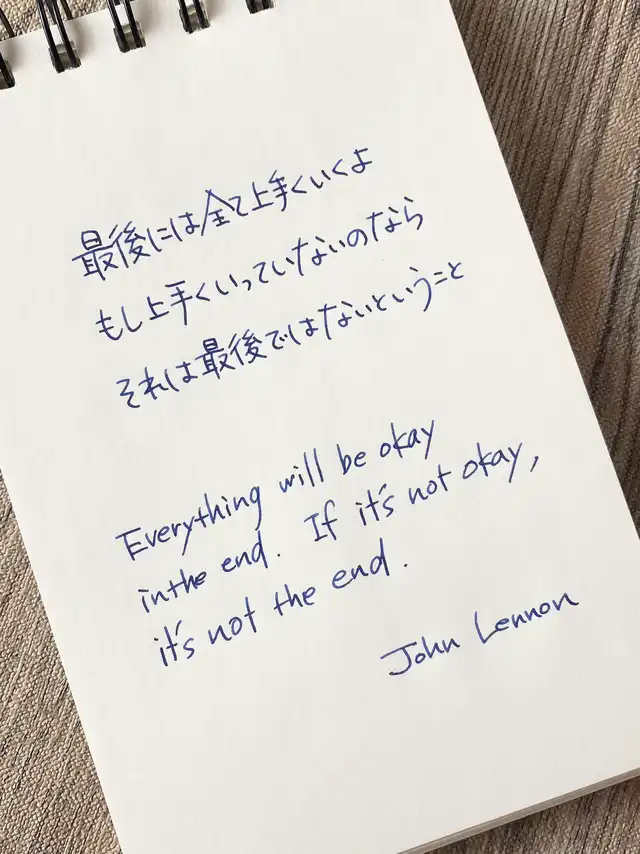 最後には全て上手くいくよ
もし上手くいっていないのなら
それは最後ではないということ
Everything will be okay
in the end. If it's not okay,
it's not the end.
John Lennon